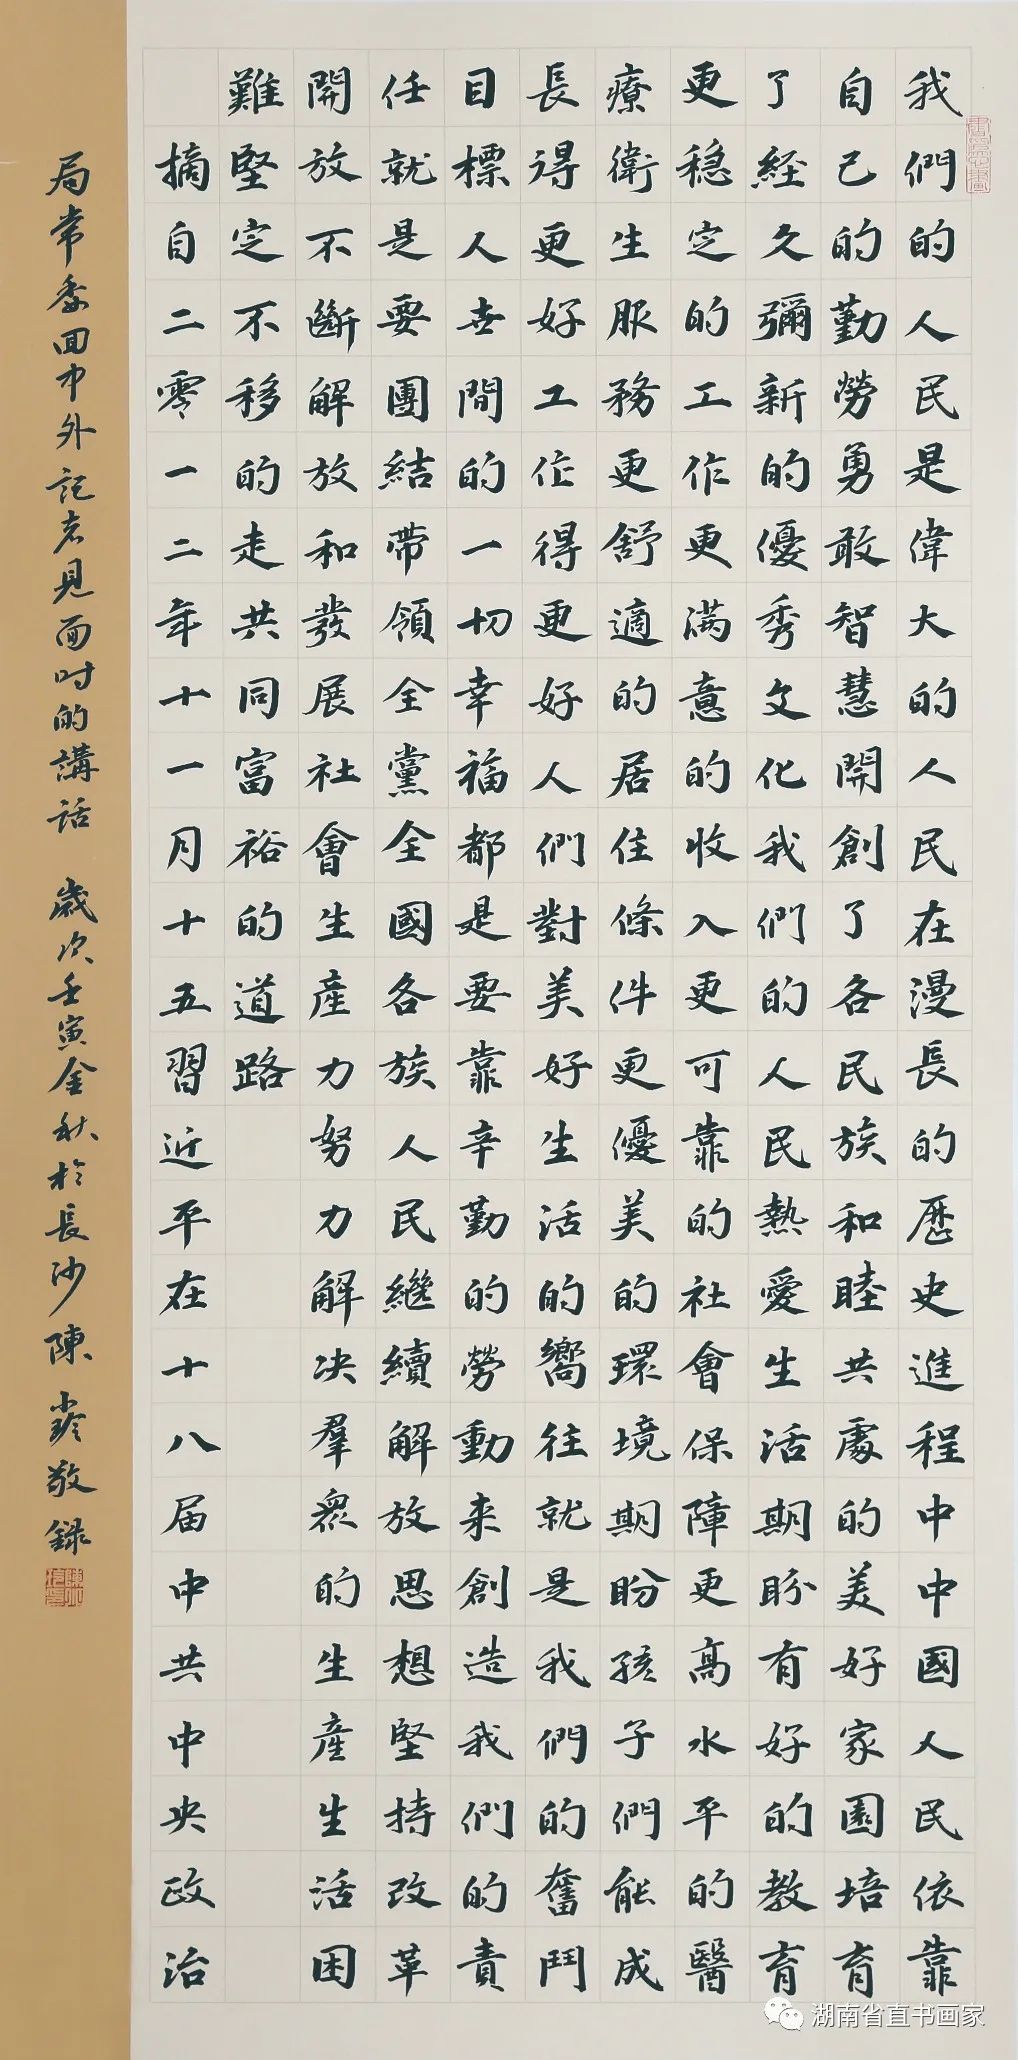 我們的人民是偉大的人民在漫長的歷史進程中中國人民依靠
自己的勤勞勇敢智慧開創了各民族和睦共處的美好家園培育
了經久彌新的優秀文化我們的人民熱愛生活期盼有好的教育
更穩定的工作更滿意的收入更可靠的社會保障更高水平的醫
療衛生服務更舒適的居住條件更優美的環境期盼孩子們能成
長得更好工作得更好人們對美好生活的嚮往就是我們的奮鬥
目標人世間的一切幸福都是要靠辛勤的勞動来創造我們的責
任就是要團結帶領全黨全國各族人民繼續解放思想堅持改革
開放不斷解放和發展社會生產力努力解决羣眾的生產生活困
難堅定不移的走共同富裕的道路
摘自二零一二年十一月十五習近平在十八届中共中央政治
局常委同中外記者見面时的講話 歲次壬寅金秋於長沙陳敬録
湖南省直书画家